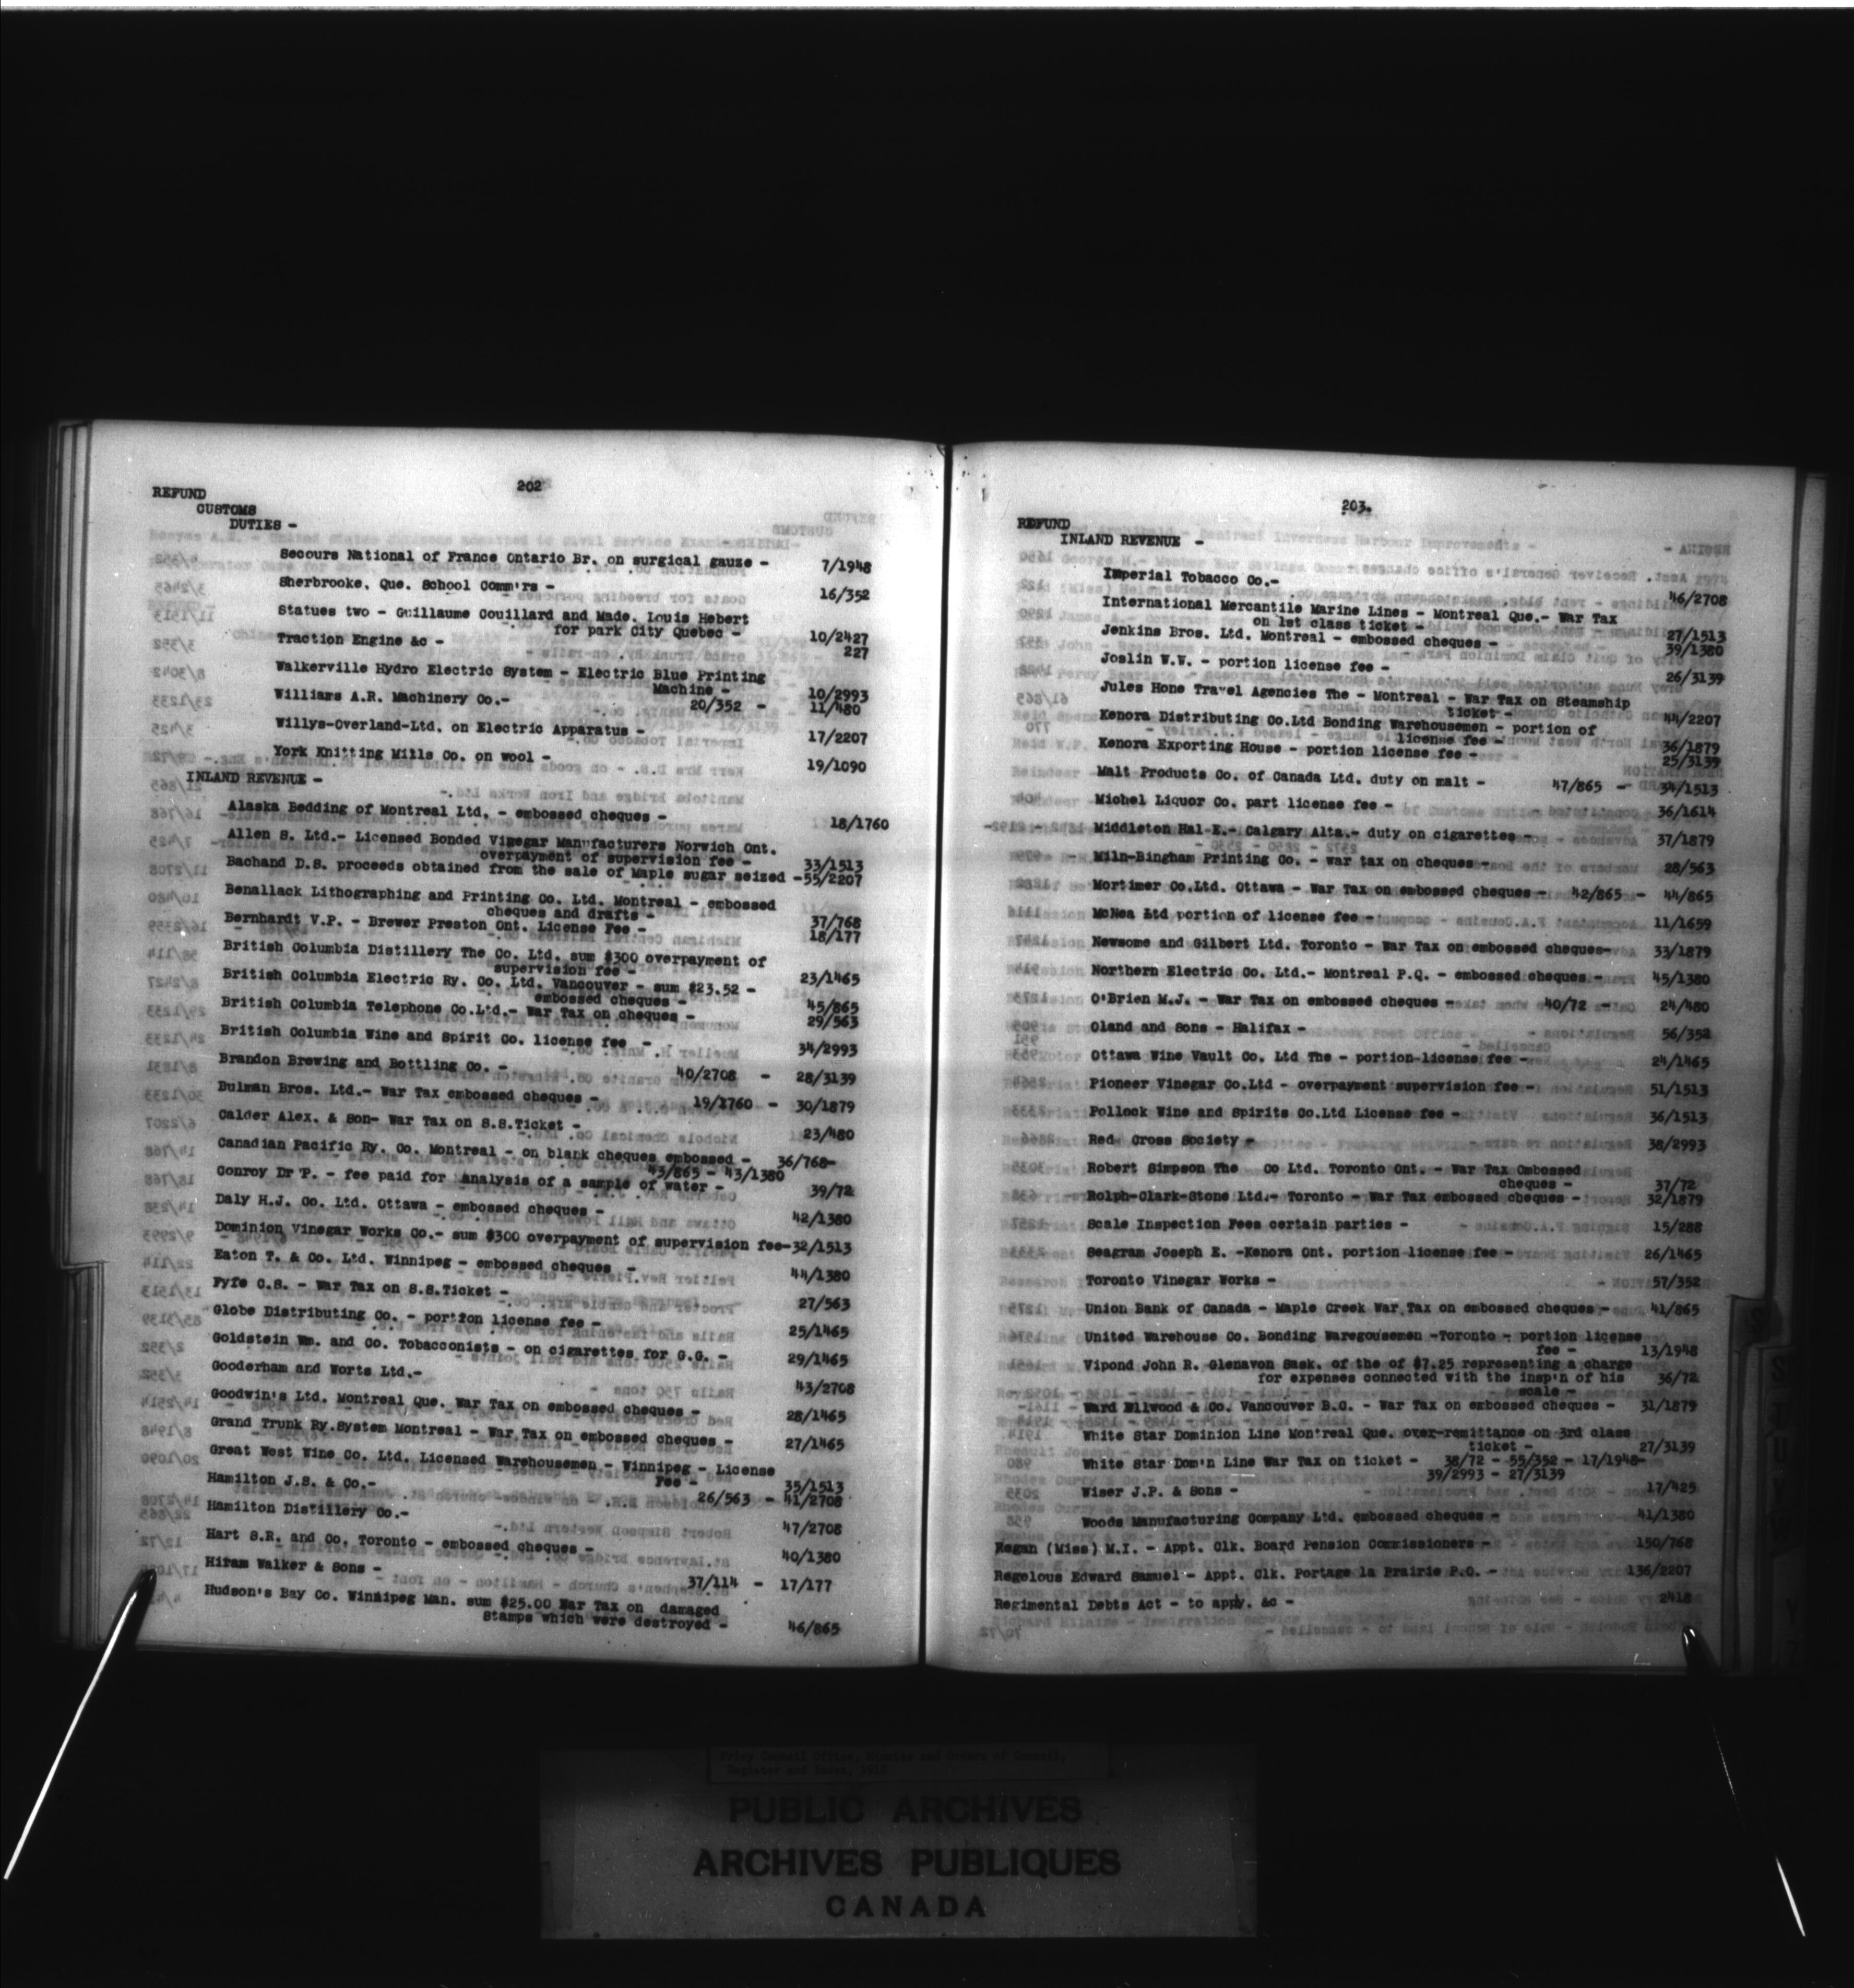 202
REFUND
CUSTOMS
DUTIES -
Secours National of France Ontario Br. on surgical gauze - 7/1948
Sherbrooke, Que. School Comm'rs - 16/352
Statues two - Guillaume Couillard and Made. Louis Hebert
for park City Quebec - 10/2427
Traction Engine &c - 227
Walkerville Hydro Electric System - Electric Blue Printing
Machine - 10/2993
Williams A.R. Machinery Co.- 20/352 - 11/480
Willys-Overland-Ltd. on Electric Apparatus - 17/2207
York Knitting Mills Co. on wool - 19/1090
INLAND REVENUE -
Alaska Bedding of Montreal Ltd. - embossed cheques - 18/1760
Allen S. Ltd.- Licensed Bonded Vinegar Manufacturers Norwich Ont.
overpayment of supervision fee - 33/1513
Bachand D.S. proceeds obtained from the sale of Maple sugar seized -55/2207
Benallack Lithographing and Printing Co. Ltd. Montreal - embossed
cheques and drafts - 37/768
Bernhardt V.P. - Brewer Preston Ont. License Fee - 18/177
British Columbia Distillery The Co. Ltd. sum $300 overpayment of
supervision fee - 23/1465
British Columbia Electric Ry. Co. Ltd. Vancouver - sum $23.52 -
embossed cheques - 45/865
British Columbia Telephone Co.Ltd.- War Tax on cheques - 29/563
British Columbia Wine and Spirit Co. license fee - 34/2993
Brandon Brewing and Bottling Co. - 40/2708 - 28/3139
Bulman Bros. Ltd.- War Tax embossed cheques - 19/1760 - 30/1879
Calder Alex. & Son- War Tax on S.S.Ticket - 23/480
Canadian Pacific Ry. Co. Montreal - on blank cheques embossed - 36/768-
43/865 - 43/1380
Conroy Dr P. - fee paid for analysis of a sample of water - 39/72
Daly H.J. Co. Ltd. Ottawa - embossed cheques - 42/1380
Dominion Vinegar Works Co.- sum $300 overpayment of supervision fee-32/1513
Eaton T. & Co. Ltd. Winnipeg - embossed cheques - 44/1380
Fyfe C.S. - War Tax on S.S.Ticket - 27/563
Globe Distributing Co. - portion license fee - 25/1465
Goldstein Wm. and Co. Tobacconists - on cigarettes for G.G. - 29/1465
Gooderham and Worts Ltd.- 43/2708
Goodwin's Ltd. Montreal Que. War Tax on embossed cheques - 28/1465
Grand Trunk Ry.System Montreal - War Tax on embossed cheques - 27/1465
Great West Wine Co. Ltd. Licensed Warehousemen - Winnipeg - License
Fee - 35/1513
Hamilton J.S. & Co.- 26/563 - 41/2708
Hamilton Distillery Co.- 47/2708
Hart S.R. and Co. Toronto - embossed cheques - 40/1380
Hiram Walker & Sons - 37/114 - 17/177
Hudson's Bay Co. Winnipeg Man. sum $25.00 War Tax on damaged
Stamps which were destroyed - 46/865
203.
REFUND
INLAND REVENUE -
Imperial Tobacco Co.- 46/2708
International Mercantile Marine Lines - Montreal Que.- War Tax
on 1st class ticket - 27/1513
Jenkins Bros. Ltd. Montreal - embossed cheques - 39/1380
Joslin W.W. - portion license fee - 26/3139
Jules Hone Travel Agencies The - Montreal - War Tax on Steamship
ticket - 44/2207
Kenora Distributing Co.Ltd Bonding Warehousemen - portion of
license fee - 36/1879
Kenora Exporting House - portion license fee - 25/3139
Malt Products Co. of Canada Ltd. duty on malt - 47/865 - 34/1513
Michel Liquor Co. part license fee - 36/1614
Middleton Hal E.- Calgary Alta.- duty on cigarettes - 37/1879
Miln-Bingham Printing Co. - war tax on cheques - 28/563
Mortimer Co.Ltd. Ottawa - War Tax on embossed cheques - 42/865 - 44/865
McNea Ltd portion of license fee - 11/1659
Newsome and Gilbert Ltd. Toronto - War Tax on embossed cheques- 33/1879
Northern Electric Co. Ltd.- Montreal P.Q. - embossed cheques - 45/1380
O'Brien M.J. - War Tax on embossed cheques - 40/72 - 24/480
Oland and Sons - Halifax - 56/352
Ottawa Wine Vault Co. Ltd The - portion-license fee - 24/1465
Pioneer Vinegar Co.Ltd - overpayment supervision fee - 51/1513
Pollock Wine and Spirits Co.Ltd License fee - 36/1513
Red Cross Society - 38/2993
Robert Simpson The Co Ltd. Toronto Ont. - War Tax Ombossed
cheques - 37/72
Rolph-Clark-Stone Ltd.- Toronto - War Tax embossed cheques - 32/1879
Scale Inspection Fees certain parties - 15/288
Seagram Joseph E. -Kenora Ont. portion license fee - 26/1465
Toronto Vinegar Works - 57/352
Union Bank of Canada - Maple Creek War Tax on embossed cheques - 41/865
United Warehouse Co. Bonding Waregousemen -Toronto - portion license
fee - 13/1948
Vipond John R. Glenavon Sask. of the of $7.25 representing a charge
for expenses connected with the insp'n of his 36/72
scale -
Ward Ellwood & Co. Vancouver B.C. - War Tax on embossed cheques - 31/1879
White Star Dominion Line Mont'real Que. over-remittance on 3rd class
ticket - 27/3139
White Star Dom'n Line War Tax on ticket - 38/72 - 55/352 - 17/1948-
39/2993 - 27/3139
Wiser J.P. & Sons - 17/425
Woods Manufacturing Company Ltd. embossed cheques - 41/1380
Regan (Miss) M.I. - Appt. Clk. Board Pension Commissioners - 150/768
Regolous Edward Samuel - Appt. Clk. Portage la Prairie P.O. - 136/2207
Regimental Debts Act - to apply. &c - 2418
Privy Council Office, Minutes and Orders of Council,
Register and Index, 1918
PUBLIC ARCHIVES
ARCHIVES PUBLIQUES
CANADA